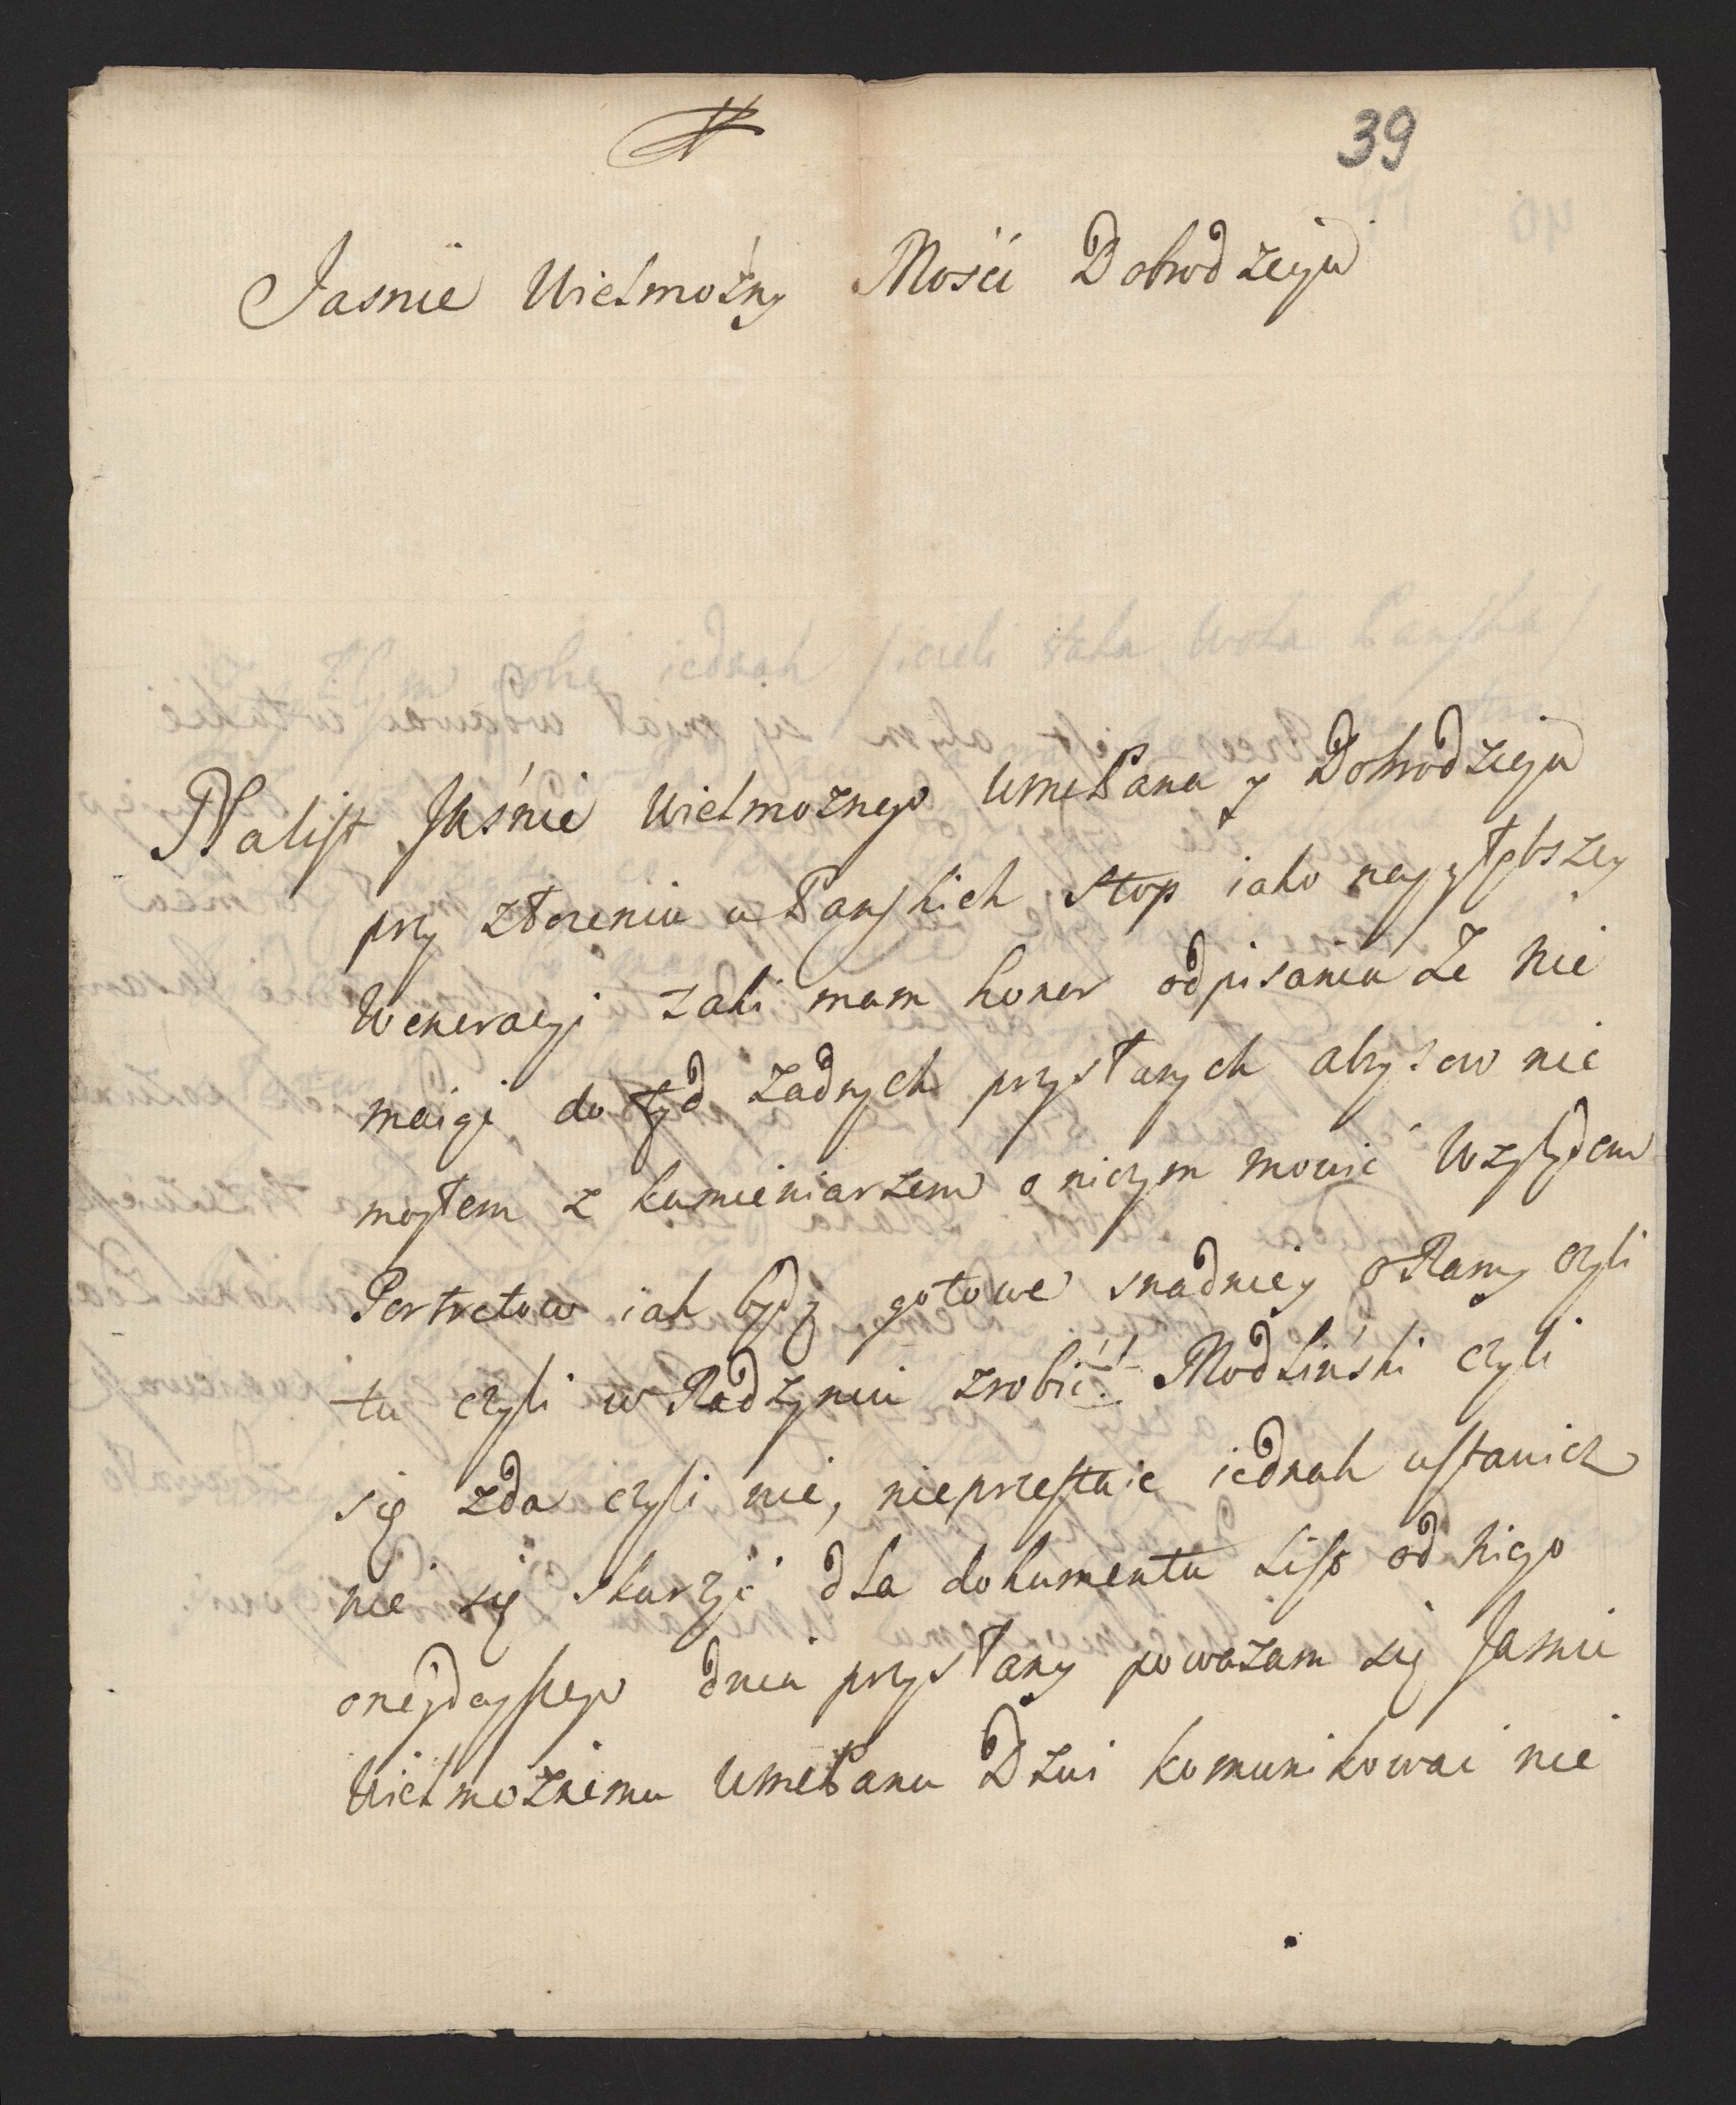 39
Jasnie Wielmożny Mości Dobrodzieju
Na list Jaśnie Wielmoznego UmcPana y Dobrodzieju
przy złozeniu u Pańskich stop iako naygłębszey
Weneracyi taki mam honor odpisania że nie
maiąc dotąd żadnych przysłanych abrysow nie
mogłem z kamieniarzem o niczym mowić Względem
Portretow iak będą gotowe snadniey o Ramy czyli
tu czyli w Radzyniu zrobić. Modliński czyli
się zda czyli nie, nieprzestaie iednak ustawicz
nie się skarzyć dla dokumentu list od niego
onegdayszego dnia przysłany powazam się Jasnie
Wielmoznemu UmcPanu Dzui komunikować nie